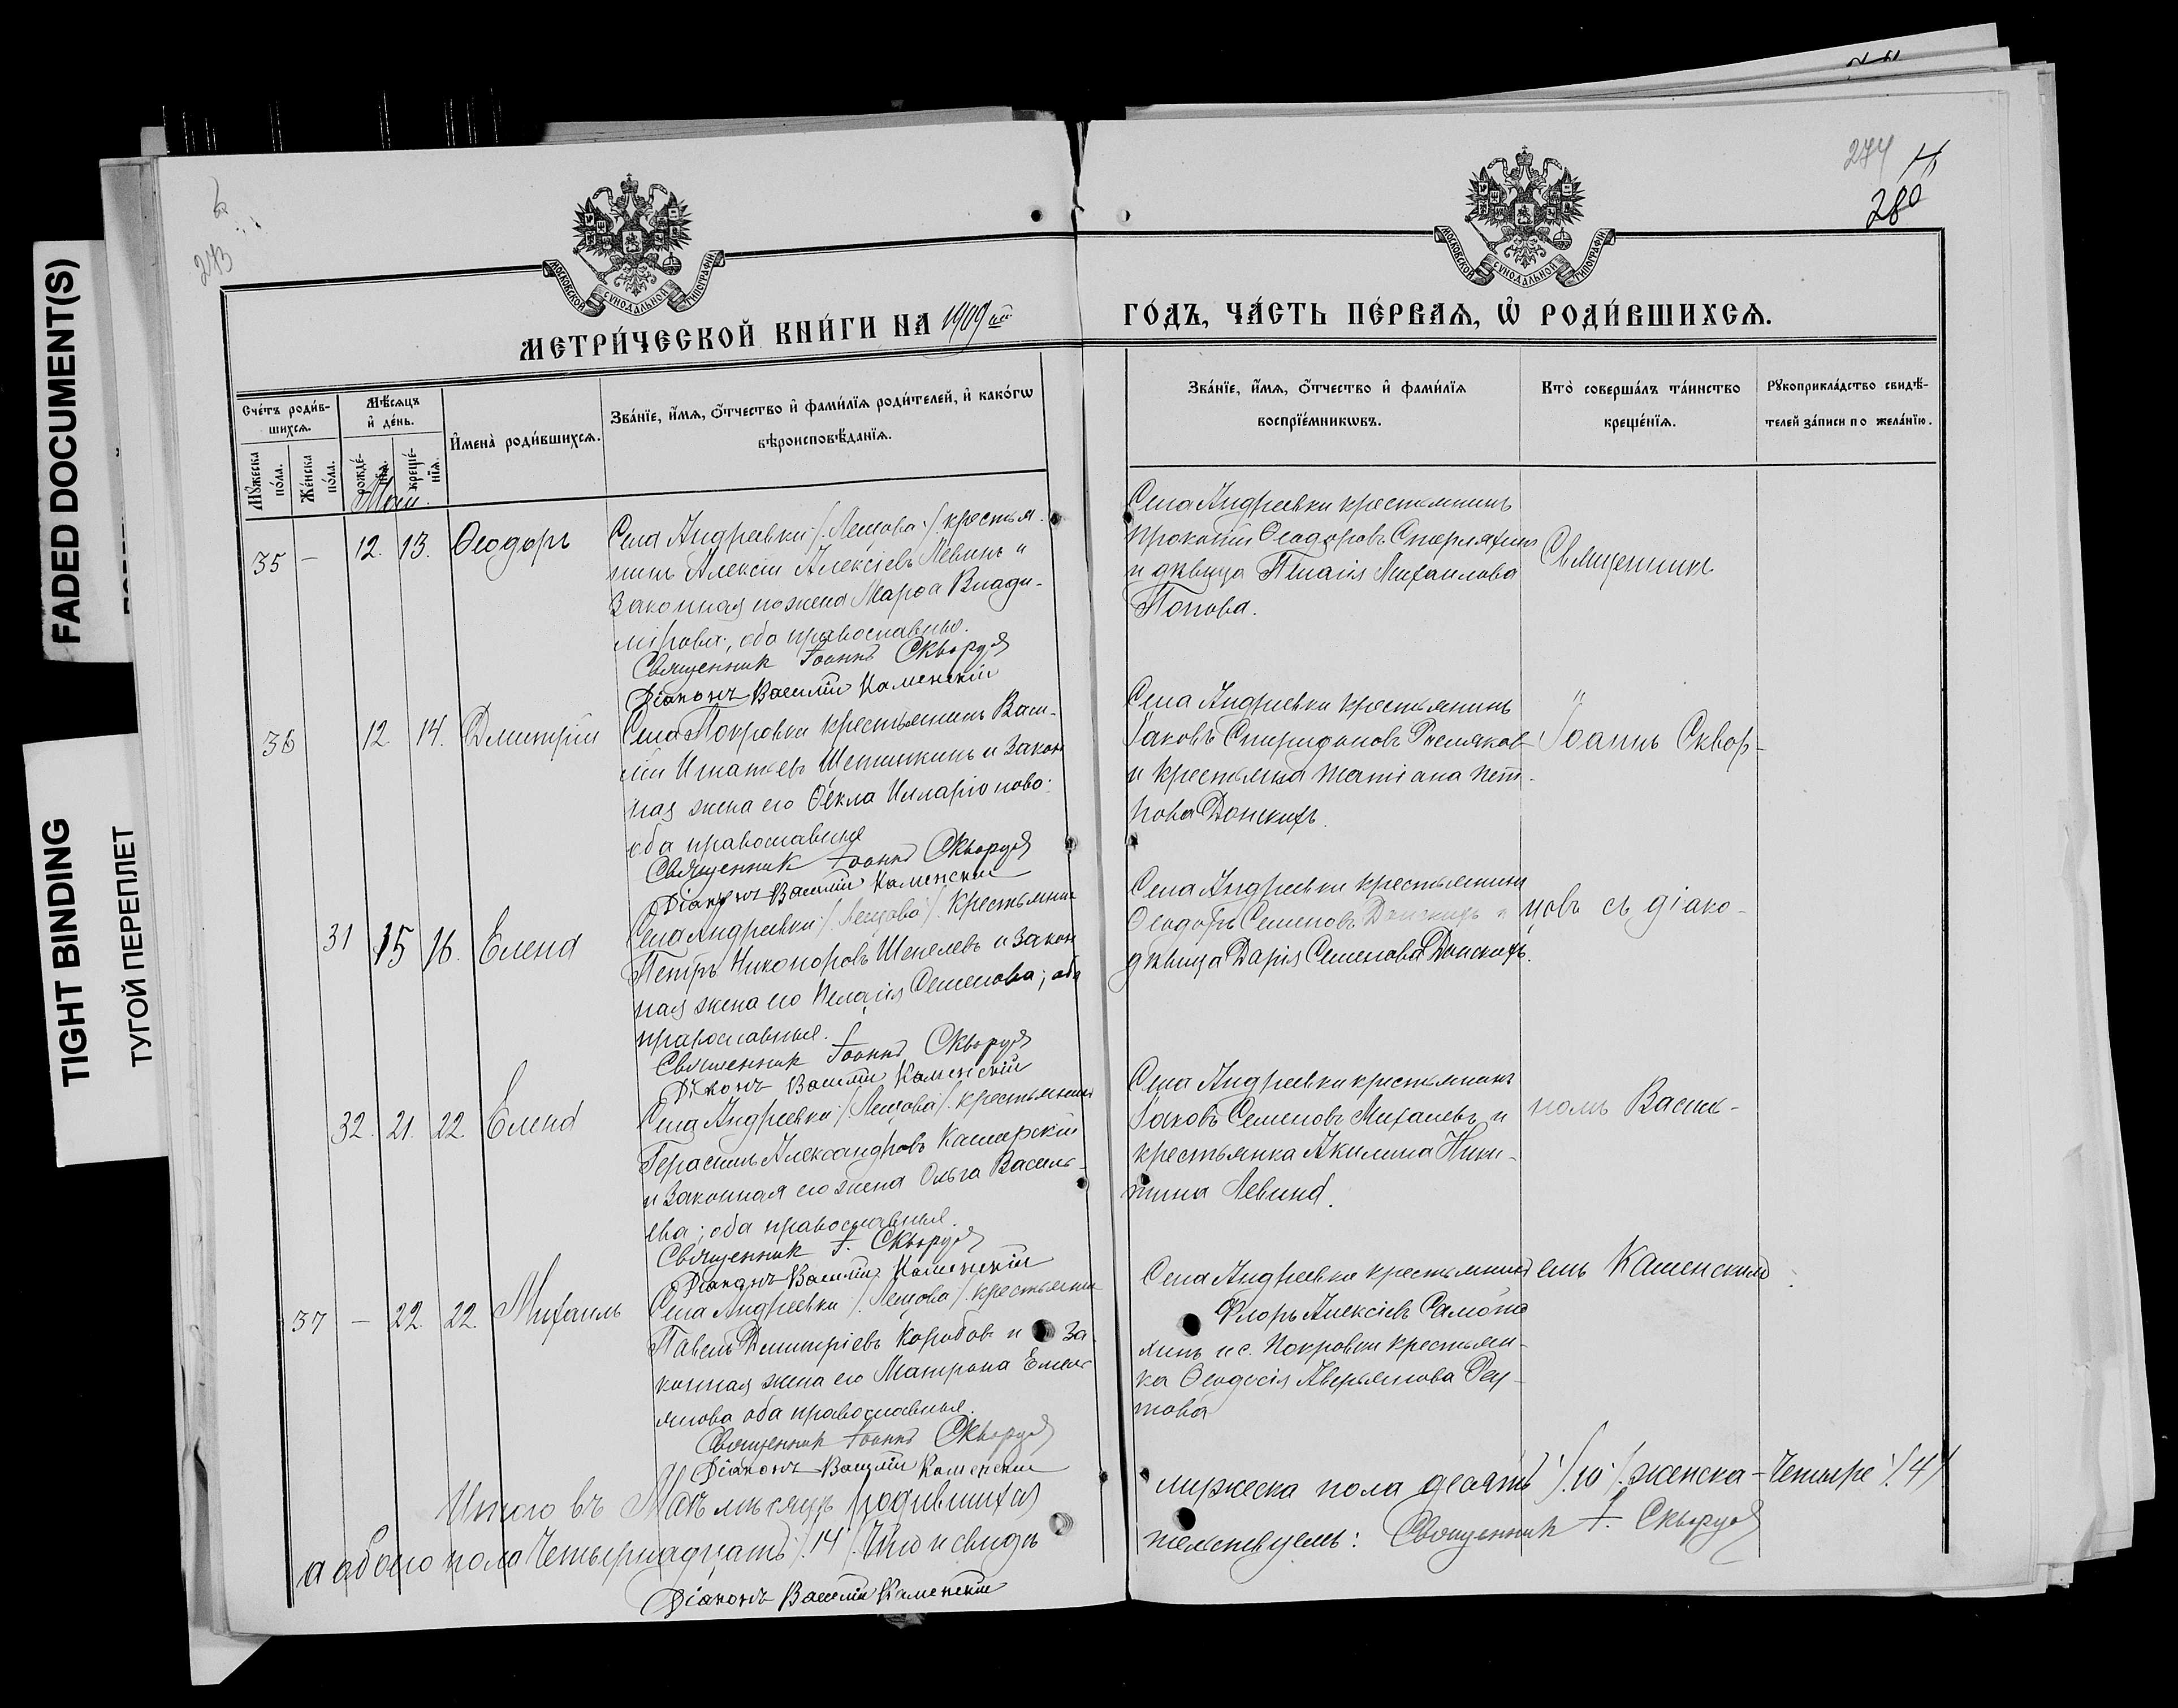 FADED DOCUMENT(S)
TIGHT BINDING
ТУГОЙ ПЕРЕПЛЕТ
273
274
280
МОСКОВСКОЙ СУНОДАЛЬНОЙ ТИПОГРАФІИ
МОСКОВСКОЙ СУНОДАЛЬНОЙ ТИПОГРАФІИ
МЕТРИ́ЧЕСКОЙ КНИ́ГИ НА 1909 ый
ГО́ДЪ, ЧА́СТЬ ПЕ́РВАѦ, Ѡ РОДИ́ВШИХСѦ.
Сче́тъ роди́в-
шихсѧ.
Мꙋ́жеска по́ла.
Же́нска по́ла.
Мѣ́сѧцъ
и҆ де́нь.
рожде́-
нїѧ.
креще́-
нїѧ.
И҆мена̀ роди́вшихсѧ.
Зва́нїе, и҆́мѧ, ѻ҆́тчество и҆ фами́лїѧ роди́телей, и҆ како́гѡ
вѣроисповѣ́данїѧ.
Зва́нїе, и҆́мѧ, ѻ҆́тчество и҆ фами́лїѧ
воспрїе́мникѡвъ.
Кто̀ соверша́лъ та́инство
креще́нїѧ.
Рꙋкоприкла́дство свидѣ́-
телей за́писи по жела́нїю.
Май.
35 — 12. 13. Ѳеодоръ
Села Андреевки /Лещова/ крестья-
нинъ Алексій Алексіевъ Левинъ и
законная его жена Марѳа Влади-
мірова; оба православные.
Священникъ Іоаннъ Скворцовъ
Діаконъ Василій Каменскій
Села Андреевки крестьянинъ
Прокопій Ѳеодоровъ
и дѣвица Пелагія Михаилова
Попова.
Священникъ
36 12. 14. Димитрій
Села Покровки крестьянинъ Васи-
лій Игнатьевъ и закон
ная жена его Ѳекла Илларіонова:
оба православные
Священникъ Іоаннъ Скворцовъ
Діаконъ Василій Каменскій
Села Андреевки крестьянинъ
Іаковъ Спиридоновъ
и крестьянка Татіана Пет-
рова Донскихъ.
Іоаннъ Сквор-
31 15 16. Елена
Села Андреевки /Лещова/ крестьянинъ
Петръ Никоноровъ Шепелевъ и закон
ная жена его Пелагія Семенова; оба
православные.
Священникъ Іоаннъ Скворцовъ
Діаконъ Василій Каменскій
Села Андреевки крестьянинъ
Ѳеодоръ Семеновъ Донскихъ и
дѣвица Дарія Семенова Донскихъ.
цовъ съ діако-
32. 21. 22. Елена
Села Андреевки /Лещова/ крестьянинъ
Герасимъ Александровъ Каширскій
и законная его жена Ольга Василь-
ева; оба православные.
Священникъ І. Скворцовъ
Діаконъ Василій Каменскій
Села Андреевки крестьянинъ
Іаковъ Семеновъ Михалевъ и
крестьянка Акилина Ники-
тина Левина.
номъ Васил-
37 — 22. 22. Михаилъ
Села Андреевки /Лещова/ крестьянинъ
Павелъ Димитріевъ Коробовъ и за-
конная жена его Матрона Емель
янова оба православные.
Священникъ Іоаннъ Скворцовъ
Діаконъ Василій Каменскій
Села Андреевки крестьянинъ
Флоръ Алексіевъ
и с. Покровки крестьян-
ка Ѳеодосія Аверьянова Реу-
това
емъ Каменскимъ
Итого въ Маѣ мѣсяцѣ родившихся
мужеска пола десять /10/ женска - четыре /4/
а обоего пола четырнадцать /14/. Что и свидѣ
тельствуемъ: Священникъ І. Скворцовъ
Діаконъ Василій Каменскій